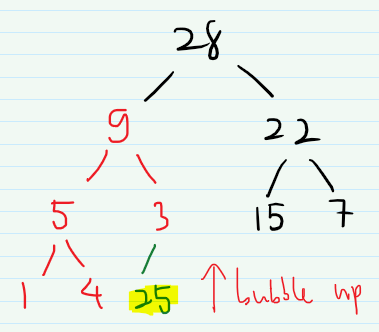 28
9 22
5 3 15 7
1 4 25 ↑ bubble up